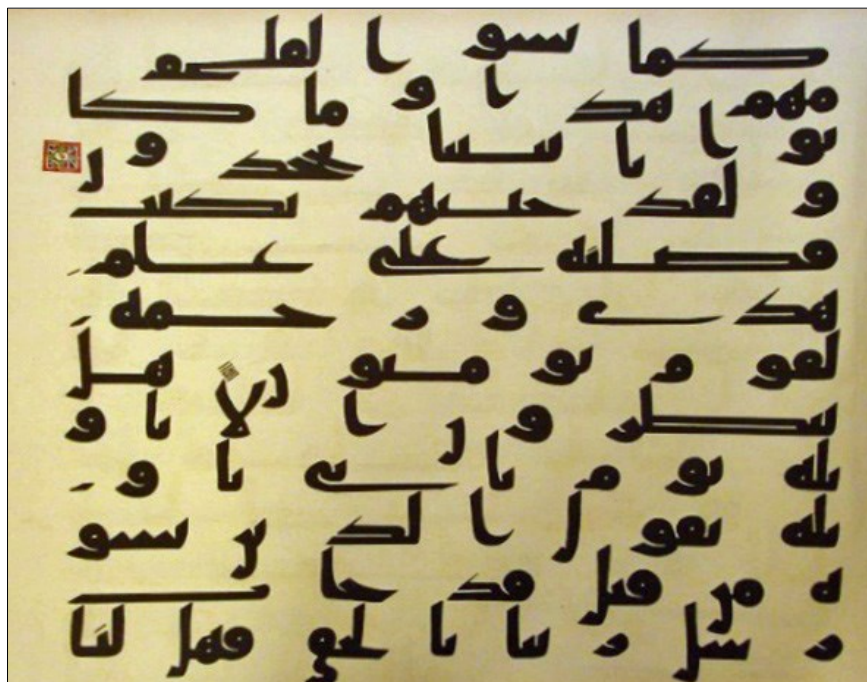 كما نسوا لقا يو
مهم هذا وما كا
نوا بايتنا يجحدون
ولقد جئنهم بكتب
فصلنه على علم
هدى ورحمه
لقوم يومنون هل
ينظرون الا تاو
يله يوم ياتي تاو
يله يقول الذين نسو
ه من قبل قد جات
رسل ربنا بالحق فهل لنا